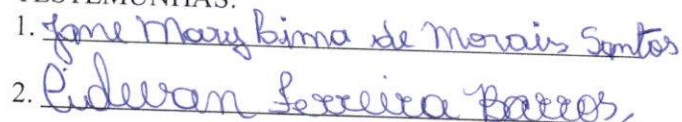 TESTEMUNHAS:
1. Jane Mary Lima de Morais Santos
2. Ferreira Barros,